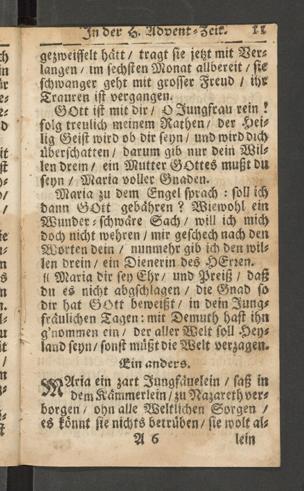 In der H. Advent-Zeit. 11
gezweiffelt hätt / tragt sie jetzt mit Ver-
langen / im sechsten Monat allbereit / sie
schwanger geht mit grosser Freud / ihr
Trauren ist vergangen.
GOtt ist mit dir / O Jungfrau rein !
folg treulich meinem Rathen / der Hei-
lig Geist wird ob dir seyn / und wird dich
überschatten / darum gib nur dein Wil-
len drein / ein Mutter GOttes mußt du
seyn / Maria voller Gnaden.
Maria zu dem Engel sprach : soll ich
dann GOtt gebähren ? Wiewohl ein
Wunder-schwäre Sach / will ich mich
doch nicht wehren / mir geschech nach den
Worten dein / nunmehr gib ich den wil-
len drein / ein Dienerin des HErren.
Maria dir sey Ehr / und Preiß / daß
du es nicht abgschlagen / die Gnad so
dir hat GOtt beweißt / in dein Jung-
fräulichen Tagen: mit Demuth hast ihn
g'nommen ein / der aller Welt soll Hey-
land seyn / sonst müßt die Welt verzagen.
Ein anders.
MAria ein zart Jungfäuelein / saß in
dem Kämmerlein / zu Nazareth ver-
borgen / ohn alle Weltlichen Sorgen /
es könnt sie nichts betrüben / sie wolt al-
A 6 lein